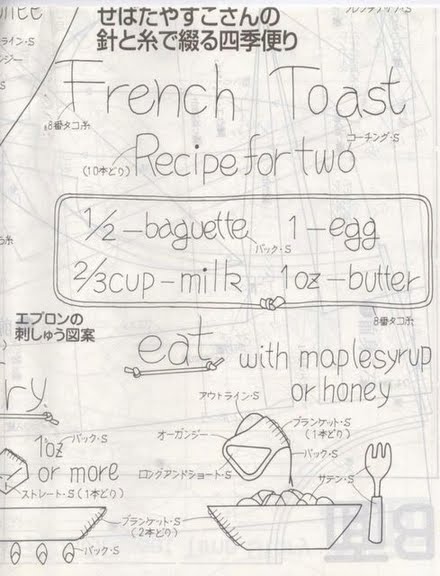 せばたやすこさんの
針と糸で綴る四季便り
French Toast
8番タコ糸
コーチング・S
(10本どり)
Recipe for two
1/2-baguette 1-egg
バック・S
2/3cup-milk 1oz-butter
8番タコ糸
エプロンの
刺しゅう図案
eat with maplesyrup
or honey
アウトライン・S
ry
1oz
バック・S
or more
ストレート・S(1本どり)
オーガンジー
ブランケット・S
(1本どり)
バック・S
ロングアンドショート・S
サテン・S
ブランケット・S
(2本どり)
バック・S